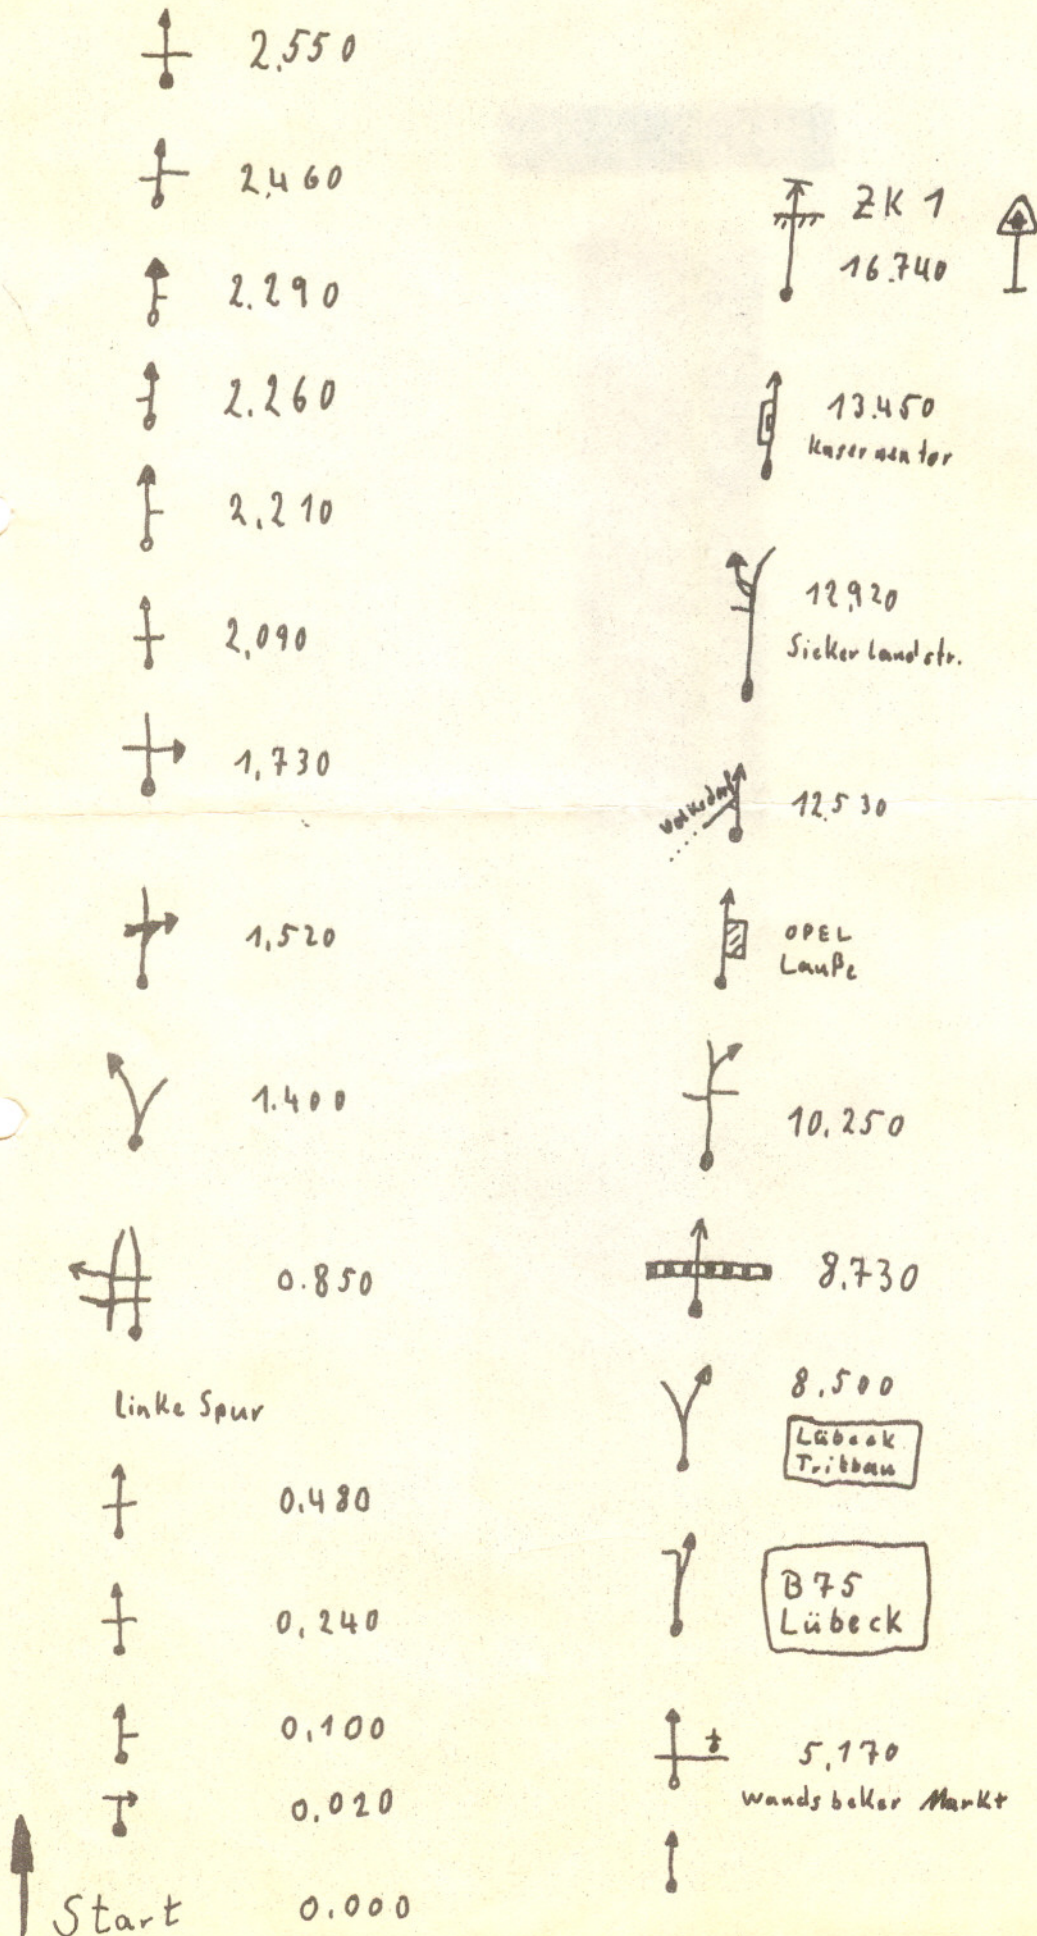 2,550
2,460
2.290
2.260
2,210
2,090
1,730
1,520
1.400
0.850
Linke Spur
0.480
0,240
0,100
0,020
Start 0.000
ZK 1
16.740
13.450
Kasernentor
12,920
Sieker Landstr.
Volksdorf
12.530
OPEL
10.250
8.730
8.500
Lübeck
Trittau
B75
Lübeck
5,170
Wandsbeker Markt